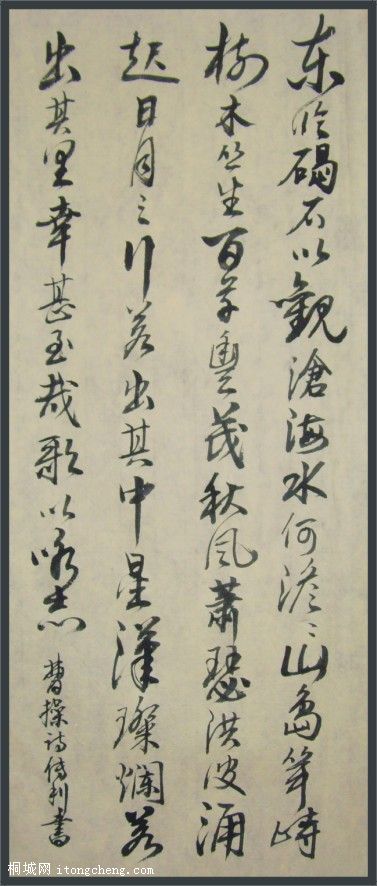 东临碣石以觀滄海水何澹〻山島竦峙
樹木丛生百草豐茂秋风蕭瑟洪波涌
起日月之行若出其中星漢璨爛若
出其里幸甚至哉歌以咏志
曹操诗書
桐城网 itongcheng.com